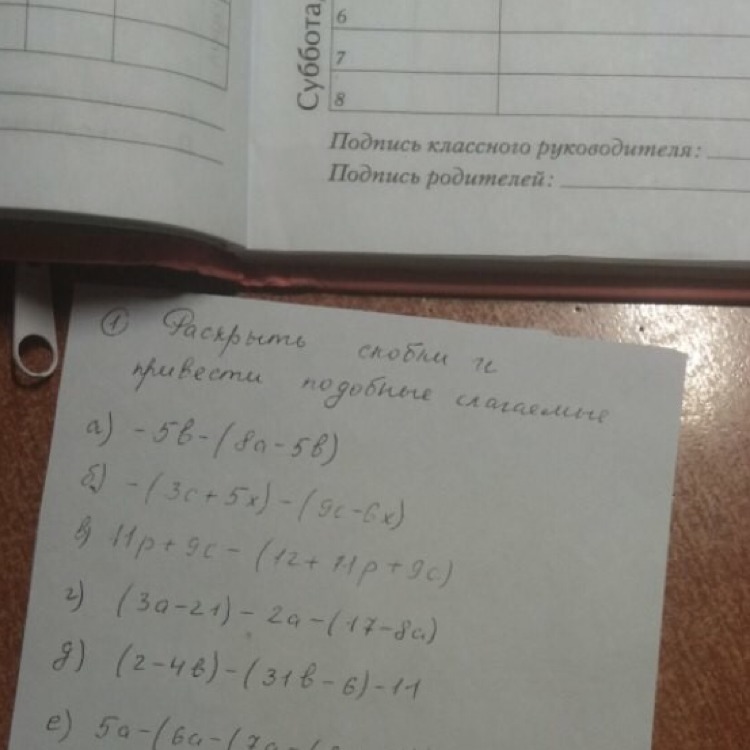 Суббота,
6
7
8
Подпись классного руководителя:
Подпись родителей:
① Раскрыть скобки и
привести подобные слагаемые
а) -5в-(8а-5в)
б) -(3с+5х)-(9с-6х)
в) 11р+9с-(12+11р+9с)
г) (3а-21)-2а-(17-8а)
д) (2-4в)-(31в-6)-11
е) 5а-(6а-(7а-(